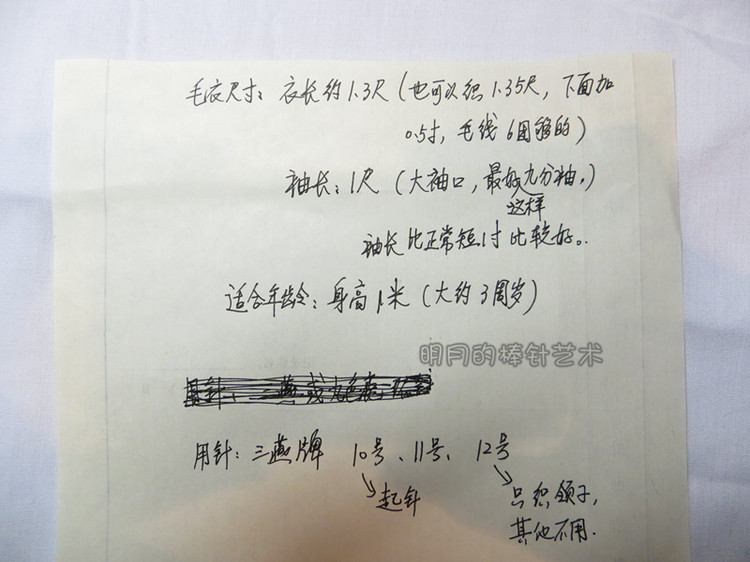 毛衣尺寸：衣长约1.3尺（也可以织1.35尺，下面加
0.5寸，毛线6团够的）
袖长：1尺（大袖口，最好九分袖，）
这样
袖长比正常短1寸比较好。
适合年龄：身高1米（大约3周岁）
明月的棒针艺术
用针：三燕牌 10号、11号、12号
起针
只织领子，
其他不用.